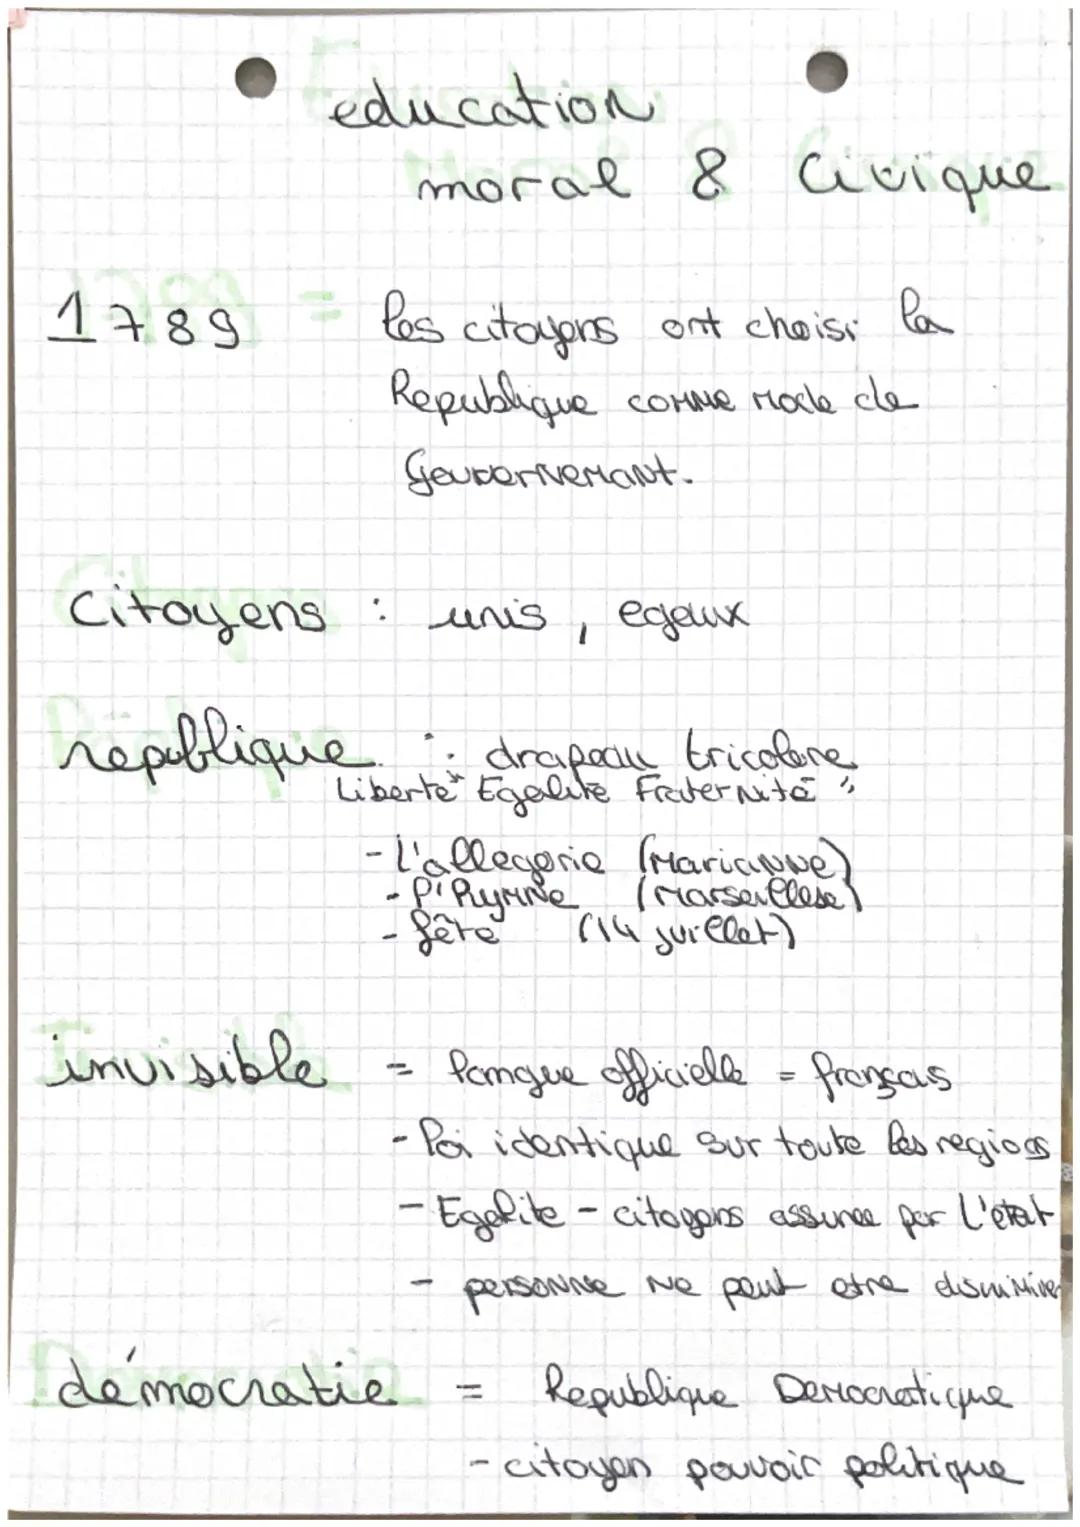 education
moral & Civique
1789 = les citoyens ont choisi la
Republique comme mode de
Gouvernemant.
Citoyens : unis, egaux
republique : drapeau tricolore
Liberté Egalité Fraternité "
- L'allegorie (Marianne)
- l'hymne (Marseillese)
- fête (14 juillet)
invisible = langue officielle = français
- loi identique sur toute les regions
- Egalite - citoyens assuree par l'etat
- personne ne peut etre
démocratie = Republique Democratique
- citoyen pouvoir politique